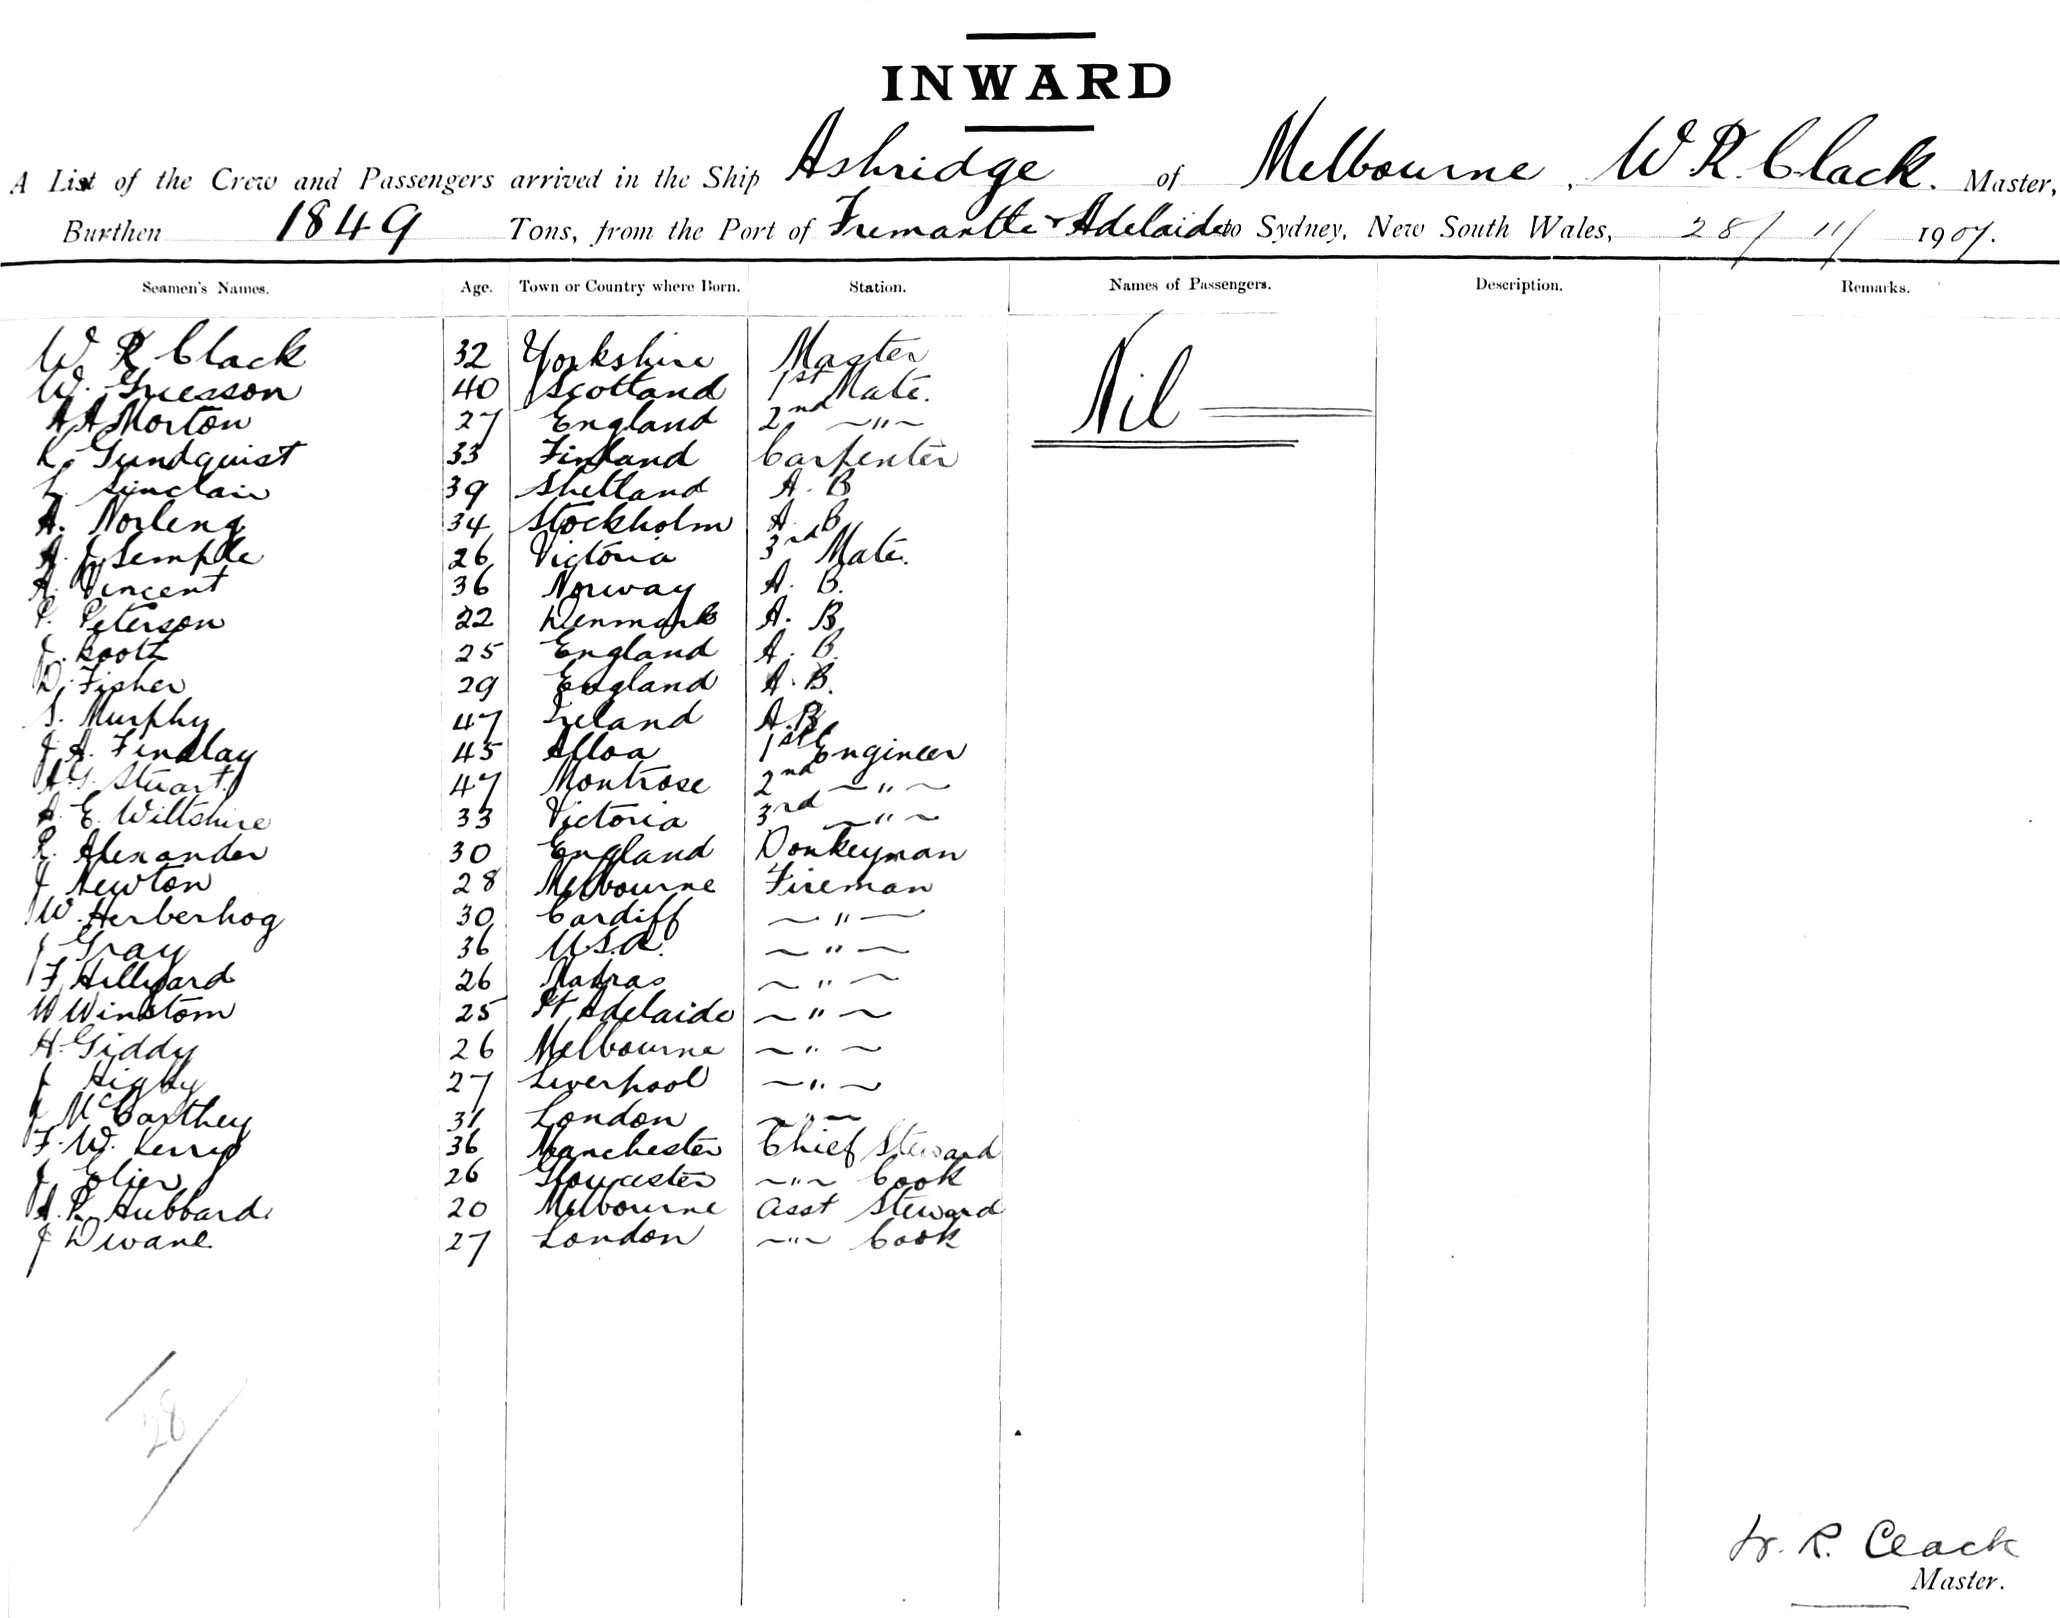 INWARD
A List of the Crew and Passengers arrived in the Ship Ashridge of Melbourne, W R. Clack. Master,
Burthen 1849 Tons, from the Port of Fremantle & Adelaide to Sydney, New South Wales, 28/11/1907.
Seamen's Names. Age. Town or Country where Born. Station. Names of Passengers. Description. Remarks.
W R Clack 32 Yorkshire Master Nil
W. Grierson 40 Scotland 1st Mate.
A A Morton 27 England 2nd ~"~
K. Gundquist 33 Finland Carpenter
L. Sinclair 39 Shetland A. B
A. Norleng 34 Stockholm A. B
A. J Semple 26 Victoria 3rd Mate.
A. Vincent 36 Norway A. B.
P. Peterson 22 Denmark A. B
J. Bootz 25 England A. B.
D. Fisher 29 England A. B.
S. Murphy 47 Ireland A. B
J. A. Findlay 45 Alloa 1st Engineer
A. G. Stuart 47 Montrose 2nd ~"~
A. E. Wiltshire 33 Victoria 3rd ~"~
R. Alexander 30 England Donkeyman
J Newton 28 Melbourne Fireman
W. Herberhog 30 Cardiff ~"~
J Gray 36 U.S.A. ~"~
F Hillyard 26 Madras ~"~
W Winstom 25 Pt Adelaide ~"~
H. Giddy 26 Melbourne ~"~
J Higby 27 Liverpool ~"~
J McCarthey 31 London ~"~
F. W. Kerry 36 Manchester Chief Steward
J Elier 26 Gloucester ~"~ Cook
A. R. Hubbard 20 Melbourne Asst Steward
J Dwane 27 London ~"~ Cook
/28/
W. R. Clack
Master.